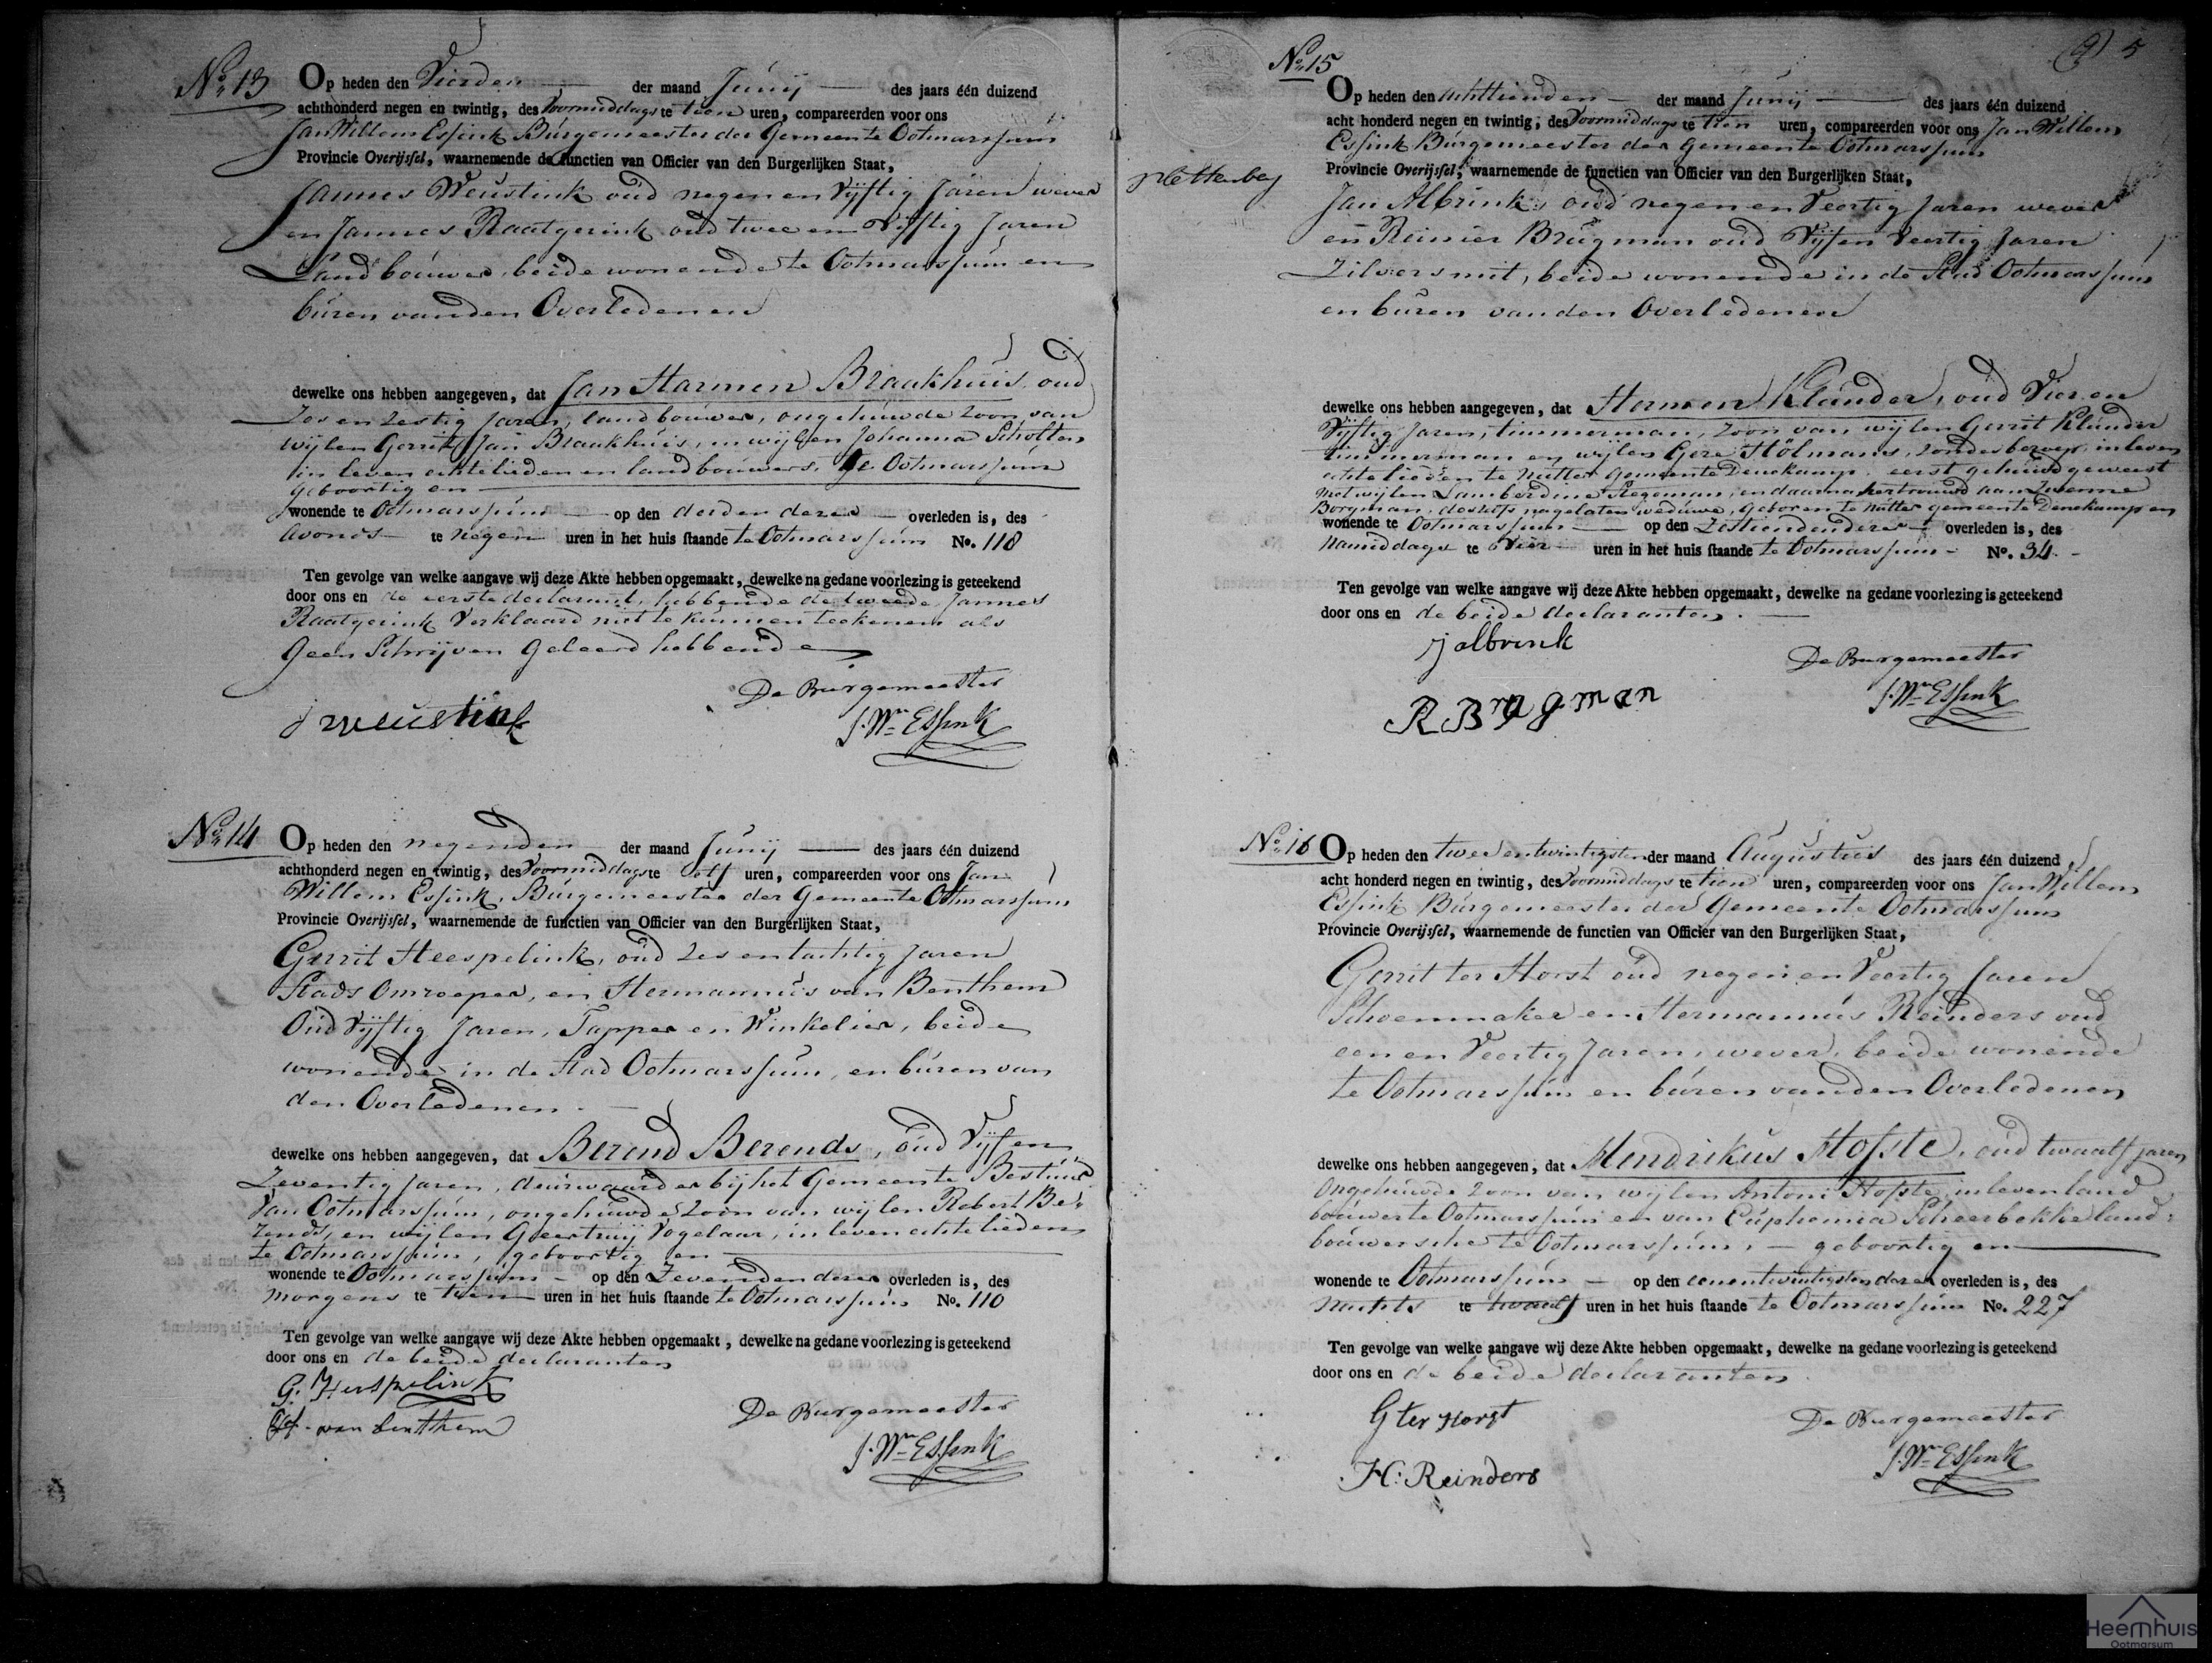 No. 13
Op heden den Vierden der maand Junij des jaars één duizend
achthonderd negen en twintig, des Voormiddags te tien uren, compareerden voor ons
Jan Willem Essink Burgemeester der Gemeente Ootmarssum
Provincie Overijssel, waarnemende de functien van Officier van den Burgerlijken Staat,
Jannes Weustink oud negen en Vijftig Jaren wever
en Jannes Raatgerink oud twee en Vijftig Jaren
Landbouwer, beide wonende te Ootmarssum en
buren van den Overledenen
dewelke ons hebben aangegeven, dat Jan Harmen Braakhuis, oud
Zes en Zestig Jaren, landbouwer, ongehuwde Zoon van
wijlen Gerrit Jan Braakhuis, en wijlen Johanna Scholten
in leven echtelieden en landbouwers. te Ootmarssum
geboortig en
wonende te Ootmarssum op den derden dezer overleden is, des
avonds te Negen uren in het huis staande te Ootmarssum No. 118
Ten gevolge van welke aangave wij deze Akte hebben opgemaakt, dewelke na gedane voorlezing is geteekend
door ons en de eerste declarant, hebbende de tweede Jannes
Raatgerink Verklaard niet te kunnen teekenen als
Geen Schrijven Geleerd hebbende
De Burgemeester
J weustink
J. Wm Essink
No. 14
Op heden den negenden der maand Junij des jaars één duizend
achthonderd negen en twintig, des Voormiddags te elf uren, compareerden voor ons Jan
Willem Essink, Burgemeester der Gemeente Otmarssum
Provincie Overijssel, waarnemende de functien van Officier van den Burgerlijken Staat,
Gerrit Heespelink, oud Zes en tachtig Jaren
Stads Omroeper, en Hermannus van Benthem
Oud Vijftig Jaren, Tapper en Winkelier, beide
wonende in de Stad Ootmarssum, en buren van
den Overledenen.
dewelke ons hebben aangegeven, dat Berend Berends, oud Vijf en
Zeventig Jaren, deurwaarder bij het Gemeente Bestuur
Van Ootmarssum, ongehuwde Zoon van wijlen Robert Be-
rends, en wijlen Geertruij Vogelaar, in leven echtelieden
te Ootmarssum, geboortig en
wonende te Ootmarssum op den Zevenden dezer overleden is, des
morgens te tien uren in het huis staande te Ootmarssum No. 110
Ten gevolge van welke aangave wij deze Akte hebben opgemaakt, dewelke na gedane voorlezing is geteekend
door ons en de beide declaranten
G. Heespelink
van benthem
De Burgemeester
J. Wm Essink
9) 5
No. 15
Op heden den Achttienden der maand Junij des jaars één duizend
acht honderd negen en twintig, des Voormiddags te tien uren, compareerden voor ons Jan Willem
Essink Burgemeester der Gemeente Ootmarssum
Provincie Overijssel, waarnemende de functien van Officier van den Burgerlijken Staat,
Jan Albrink, oud negen en Veertig Jaren wever
en Reinier Brugman oud Vijf en Veertig Jaren
Zilversmit, beide wonende in de Stad Ootmarssum
en buren van den Overledenen
dewelke ons hebben aangegeven, dat Harmen Klunder, oud Vier en
Vijftig Jaren, timmerman, Zoon van wijlen Gerrit Klunder
timmerman en wijlen Gese Hölmans, Zonder beroep, in leven
echtelieden te Nutter Gemeente Denekamp. eerst gehuwd geweest
met wijlen Lamberdina Stegeman, en daarna hertrouwd aan Zwenne
Borgman, deszelfs nagelaten weduwe, geboren te Nutter gemeente Denekamp en
wonende te Ootmarssum op den Zestienden dezer overleden is, des
Namiddags te Vier uren in het huis staande te Ootmarssum No. 34.
Ten gevolge van welke aangave wij deze Akte hebben opgemaakt, dewelke na gedane voorlezing is geteekend
door ons en de beide declaranten.
J albrink
De Burgemeester
R Brugman
J. Wm Essink
No. 16
Op heden den twee en twintigsten der maand Augustus des jaars één duizend
acht honderd negen en twintig, des Voormiddags te tien uren, compareerden voor ons Jan Willem
Essink Burgemeester der Gemeente Ootmarssum
Provincie Overijssel, waarnemende de functien van Officier van den Burgerlijken Staat,
Gerrit ter Horst oud negen en Veertig Jaren
Schoenmaker en Hermannus Reinders oud
een en Veertig Jaren, wever, beide wonende
te Ootmarssum en buren van den Overledenen
dewelke ons hebben aangegeven, dat Hendrikus Hofste, oud twaalf jaren
Ongehuwde Zoon van wijlen Antoni Hofste, in leven land
bouwer te Ootmarssum en van Euphemia Scheerbekke land-
bouwersche te Ootmarssum, geboortig en
wonende te Ootmarssum op den eenentwintigsten dezer overleden is, des
Nachts te twaalf uren in het huis staande te Ootmarssum No. 227
Ten gevolge van welke aangave wij deze Akte hebben opgemaakt, dewelke na gedane voorlezing is geteekend
door ons en de beide declaranten
G ter Horst
De Burgemeester
H: Reinders
J. Wm Essink
Heemhuis
Ootmarsum